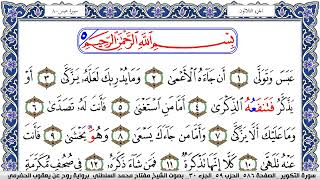 الجزء الثلاثون
بِسْمِ اللَّهِ الرَّحْمَٰنِ الرَّحِيمِ
عَبَسَ وَتَوَلَّىٰ ١ أَن جَآءَهُ ٱلْأَعْمَىٰ ٢ وَمَا يُدْرِيكَ لَعَلَّهُۥ يَزَّكَّىٰ ٣ أَوْ
يَذَّكَّرُ فَتَنفَعُهُ ٱلذِّكْرَىٰٓ ٤ أَمَّا مَنِ ٱسْتَغْنَىٰ ٥ فَأَنتَ لَهُۥ تَصَدَّىٰ ٦
وَمَا عَلَيْكَ أَلَّا يَزَّكَّىٰ ٧ وَأَمَّا مَن جَآءَكَ يَسْعَىٰ ٨ وَهُوَ يَخْشَىٰ ٩ فَأَنتَ
عَنْهُ تَلَهَّىٰ ١٠ كَلَّآ إِنَّهَا تَذْكِرَةٌ ١١ فَمَن شَآءَ ذَكَرَهُۥ ١٢ فِي صُحُفٍ مُّكَرَّمَةٍ
سورة التكوير الصفحة ٥٨٦ الحزب ٥٩ الجزء ٣٠ بصوت الشيخ مفتاح محمد السلطني برواية روح عن يعقوب الحضرمي